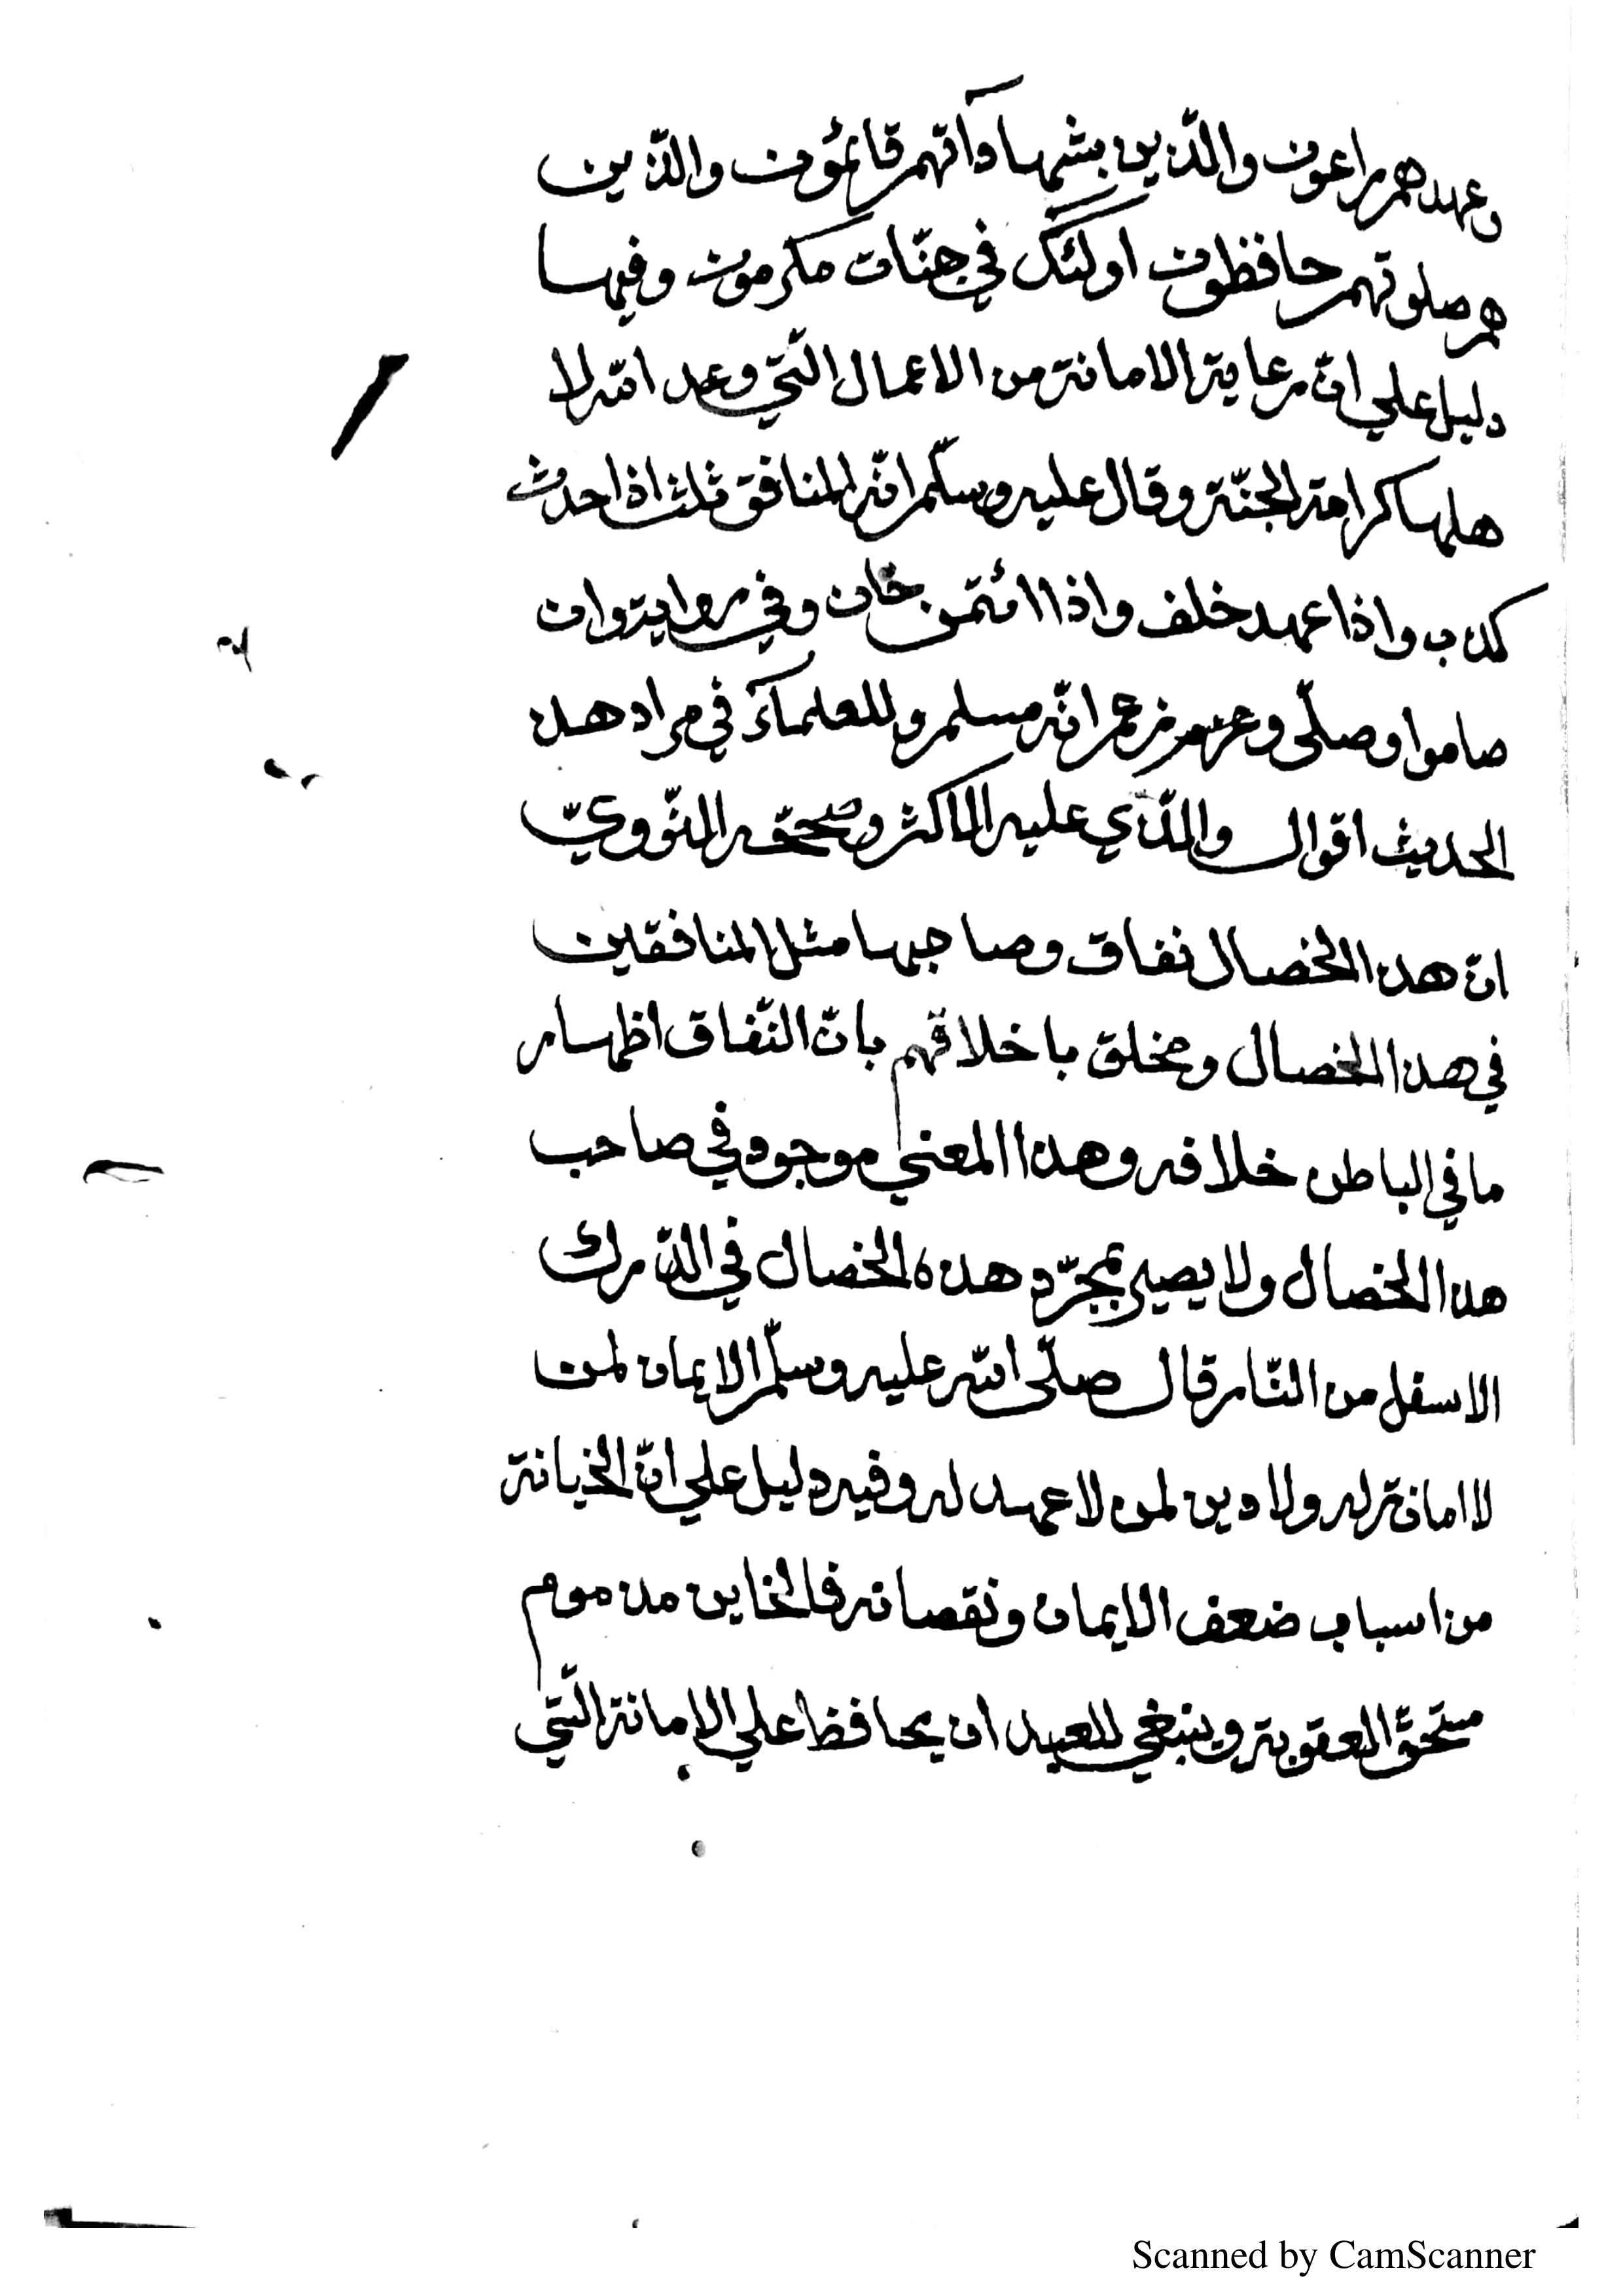 وعهدهم راعون والّذين بشهاداتهم قائمون والّذين
هم صلوتهم حافظون اولئك في جنّات مكرمون وفيها
دليل علي انّ رعاية الامانة من الاعمال الّتي وعد الله لا
هلها كرامة الجنّة وقال عليه وسلّم اثر المنافق ثلث اذا حدث
كذب واذا عهد خلف واذا ائتمن خان وفي رواية وان
صاموا وصلّى وزعم انّه مسلم وللعلماء في مراد هذ
الحديث اقوال والّذي عليه الاكثر وصححّه النّوويّ
انّ هذا الخصال نفاق وصاحبها مثل المنافقين
في هذا الخصال ومخلق باخلاقهم بانّ النّفاق اظهار
ما في الباطن خلافه وهذا المعني موجود في صاحب
هذا الخصال ولا يصير بمجرّد هذه الخصال في الدّرك
الاسفل من النّار قال صلّى الله عليه وسلّم الايمان لمن
لا امانة له ولا دين لمن لا عهد له وفيه دليل علي انّ الخيانة
من اسباب ضعف الايمان ونقصانه فالخاين مذموم
مستحقّ العقوبة وينبغي للعبد ان يحافظ علي الامانة الّتي
Scanned by CamScanner